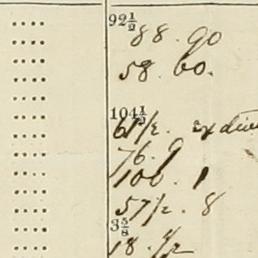 92½
88. 90
58. 60.
104½
61½. ex div
76. 9
100. 1
57½. 8
3⅝
18. ½